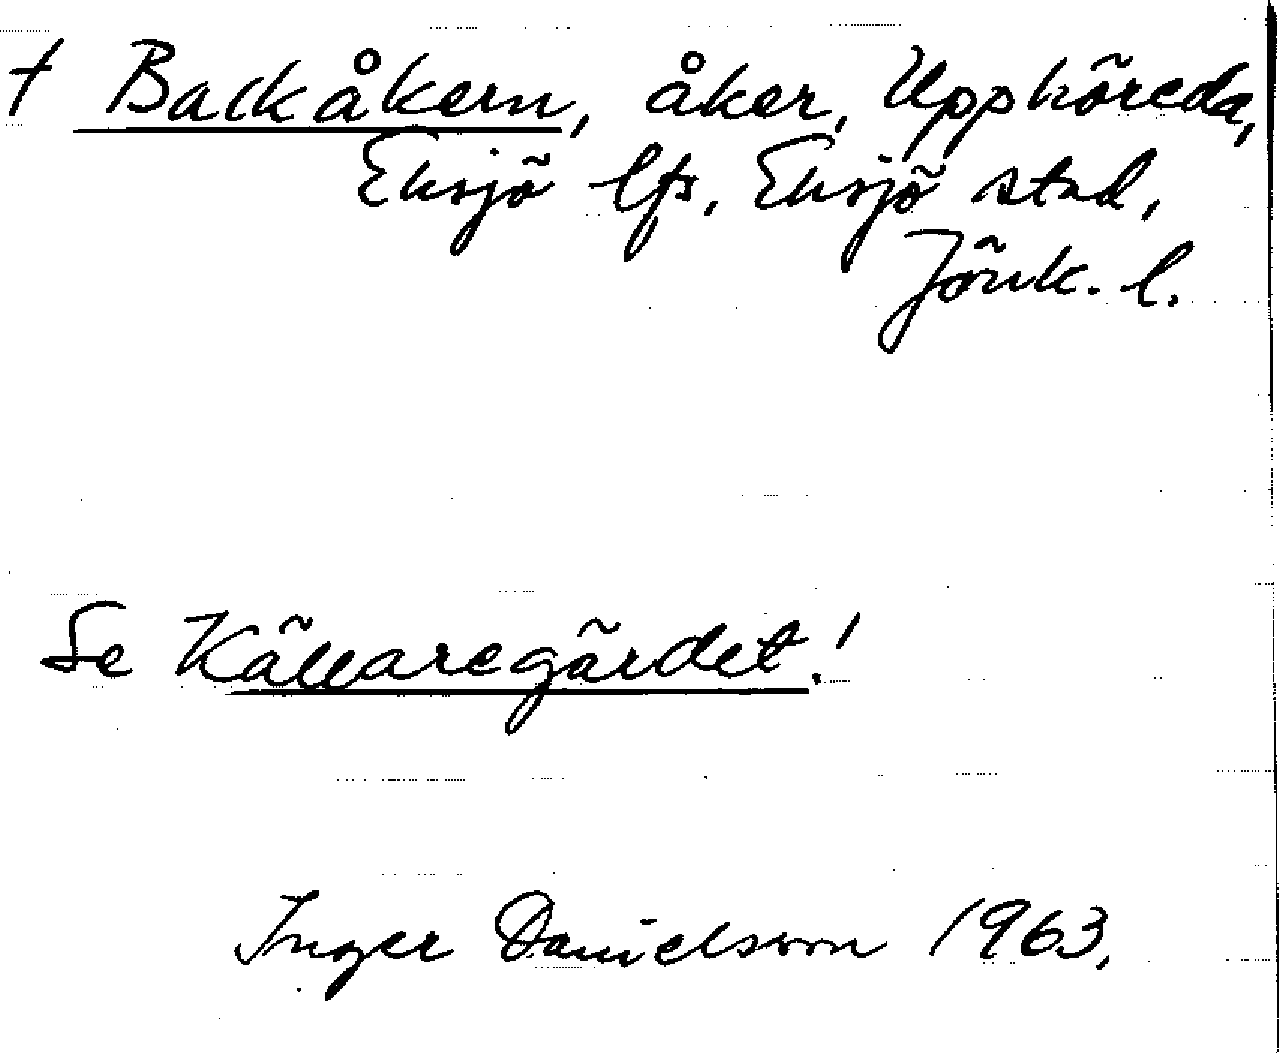 † Backåkern, åker, Uppköreda,
Eksjö lfs, Eksjö stad,
Jönk. l.
Se Källaregärdet!
Inger Danielsson 1963.